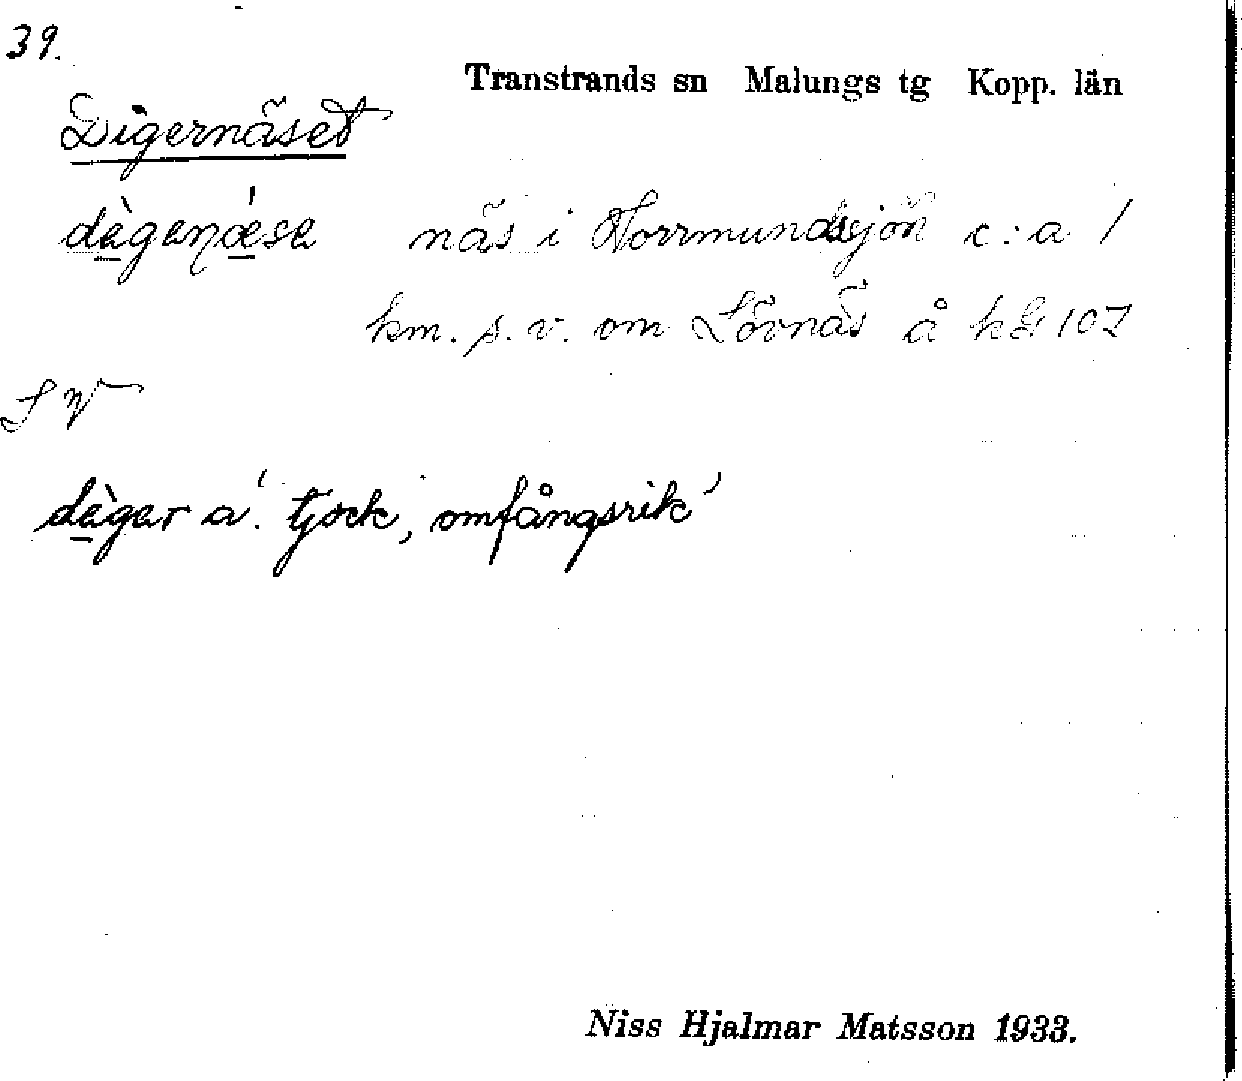 39.
Transtrands sn Malungs tg Kopp. län
Digernäset
dàgeṇǽsa näs i Norrmundsjön c:a 1
km. s.v. om Lövnäs å kG 107
SV
dàgar a. 'tjock, omfångsrik'
Niss Hjalmar Matsson 1933.